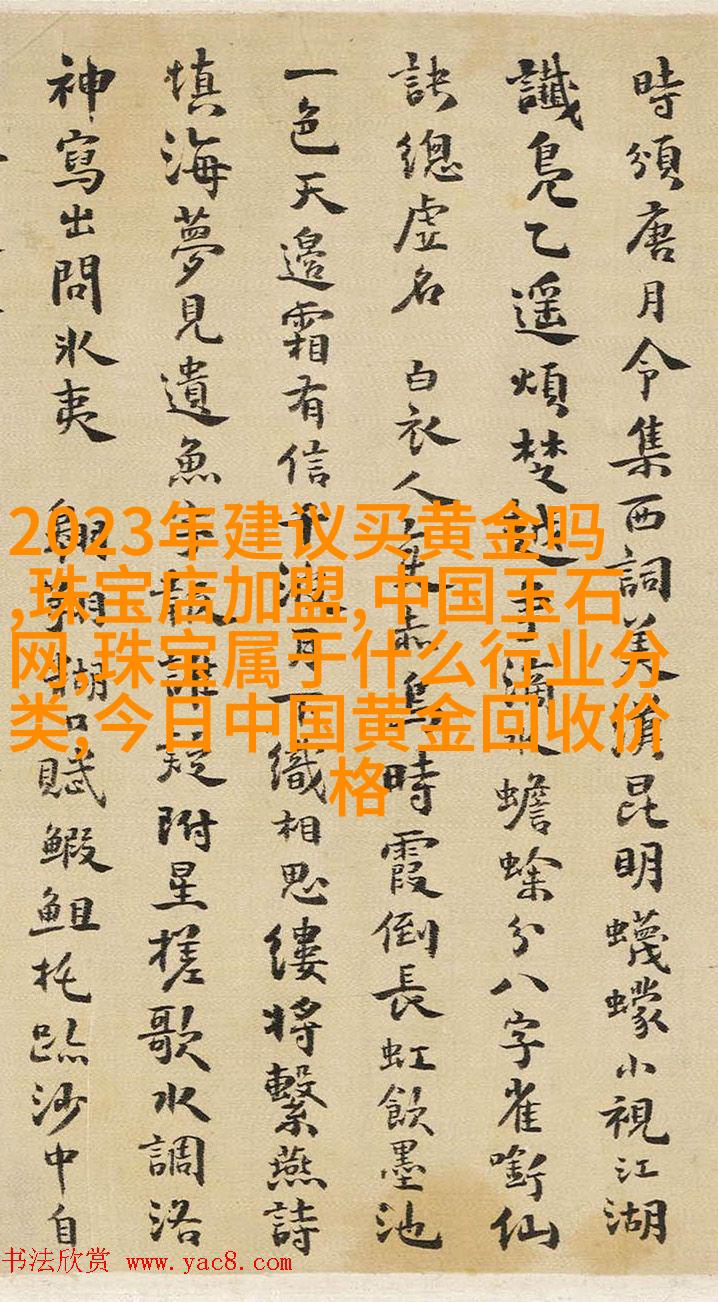 時頒唐月令集西詞美滄昆明蠛蠓小視江湖
讖鳧乙遥煩楚越手滴水蟾蜍分八字雀銜仙
訣總虛名 白衣人時霞倒長虹飲墨池
一色天邊霜有信千潮月下織相思縷將繫燕詩
填海夢見遺魚誰疑附星槎歌水調洛
神寫出問冰夷 賦鰕鮔托跡沙中自
2023年建议买黄金吗
,珠宝店加盟,中国玉石
网,珠宝属于什么行业分
类,今日中国黄金回收价
格
书法欣赏 www.yac8.com